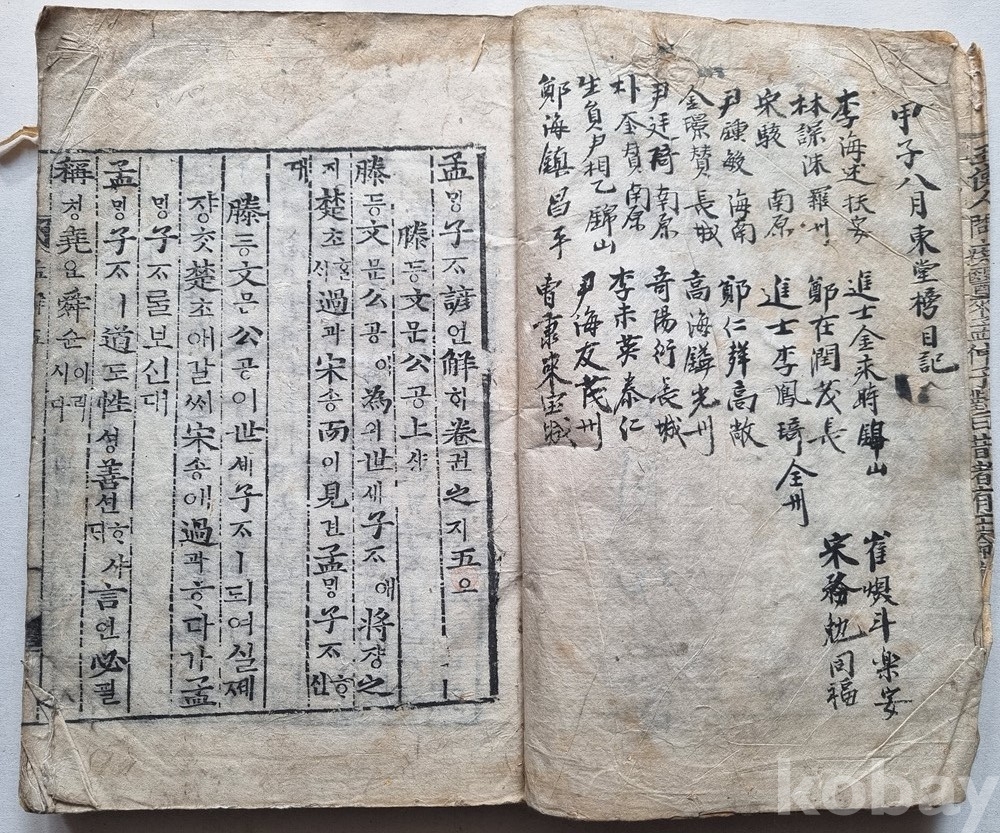 甲子八月東堂榜目記
李海述扶安 進士金未時錦山 崔熀斗樂安
林 洙羅州 鄭在潤茂長 宋務勉同福
宋駿 南原 進士李鳳琦全州
尹鍾敏海南 鄭仁 高敞
金璟賛長城 高海鏻光州
尹廷琦南原 奇陽衍長城
朴奎賛南原 李未英泰仁
生員尹相乙錦山 尹海友茂州
鄭海鎮昌平 曺秉 寶城
孟ᄆᆡᆼ子ᄌᆞ諺언解ᄒᆡ卷권之지五오
滕등文문公공上샹
滕등文문公공이為위世셰子ᄌᆞ애將쟝之
지楚초ᄒᆞᆯᄉᆡ過과宋송而이見견孟ᄆᆡᆼ子ᄌᆞᄒᆞ신
대
滕등文문公공이世셰子ᄌᆞㅣ되여실제
쟝ᄎᆞᆺ楚초애갈ᄊᆡ宋송애過과ᄒᆞ다가孟
ᄆᆡᆼ子ᄌᆞᄅᆞᆯ보신대
孟ᄆᆡᆼ子ᄌᆞㅣ道도性셩善션ᄒᆞ샤ᄃᆡ言언必필
稱칭堯요舜슌이러시다
kobay